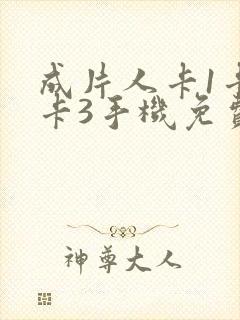 成片人卡1卡
卡3手機免費
神尊大人